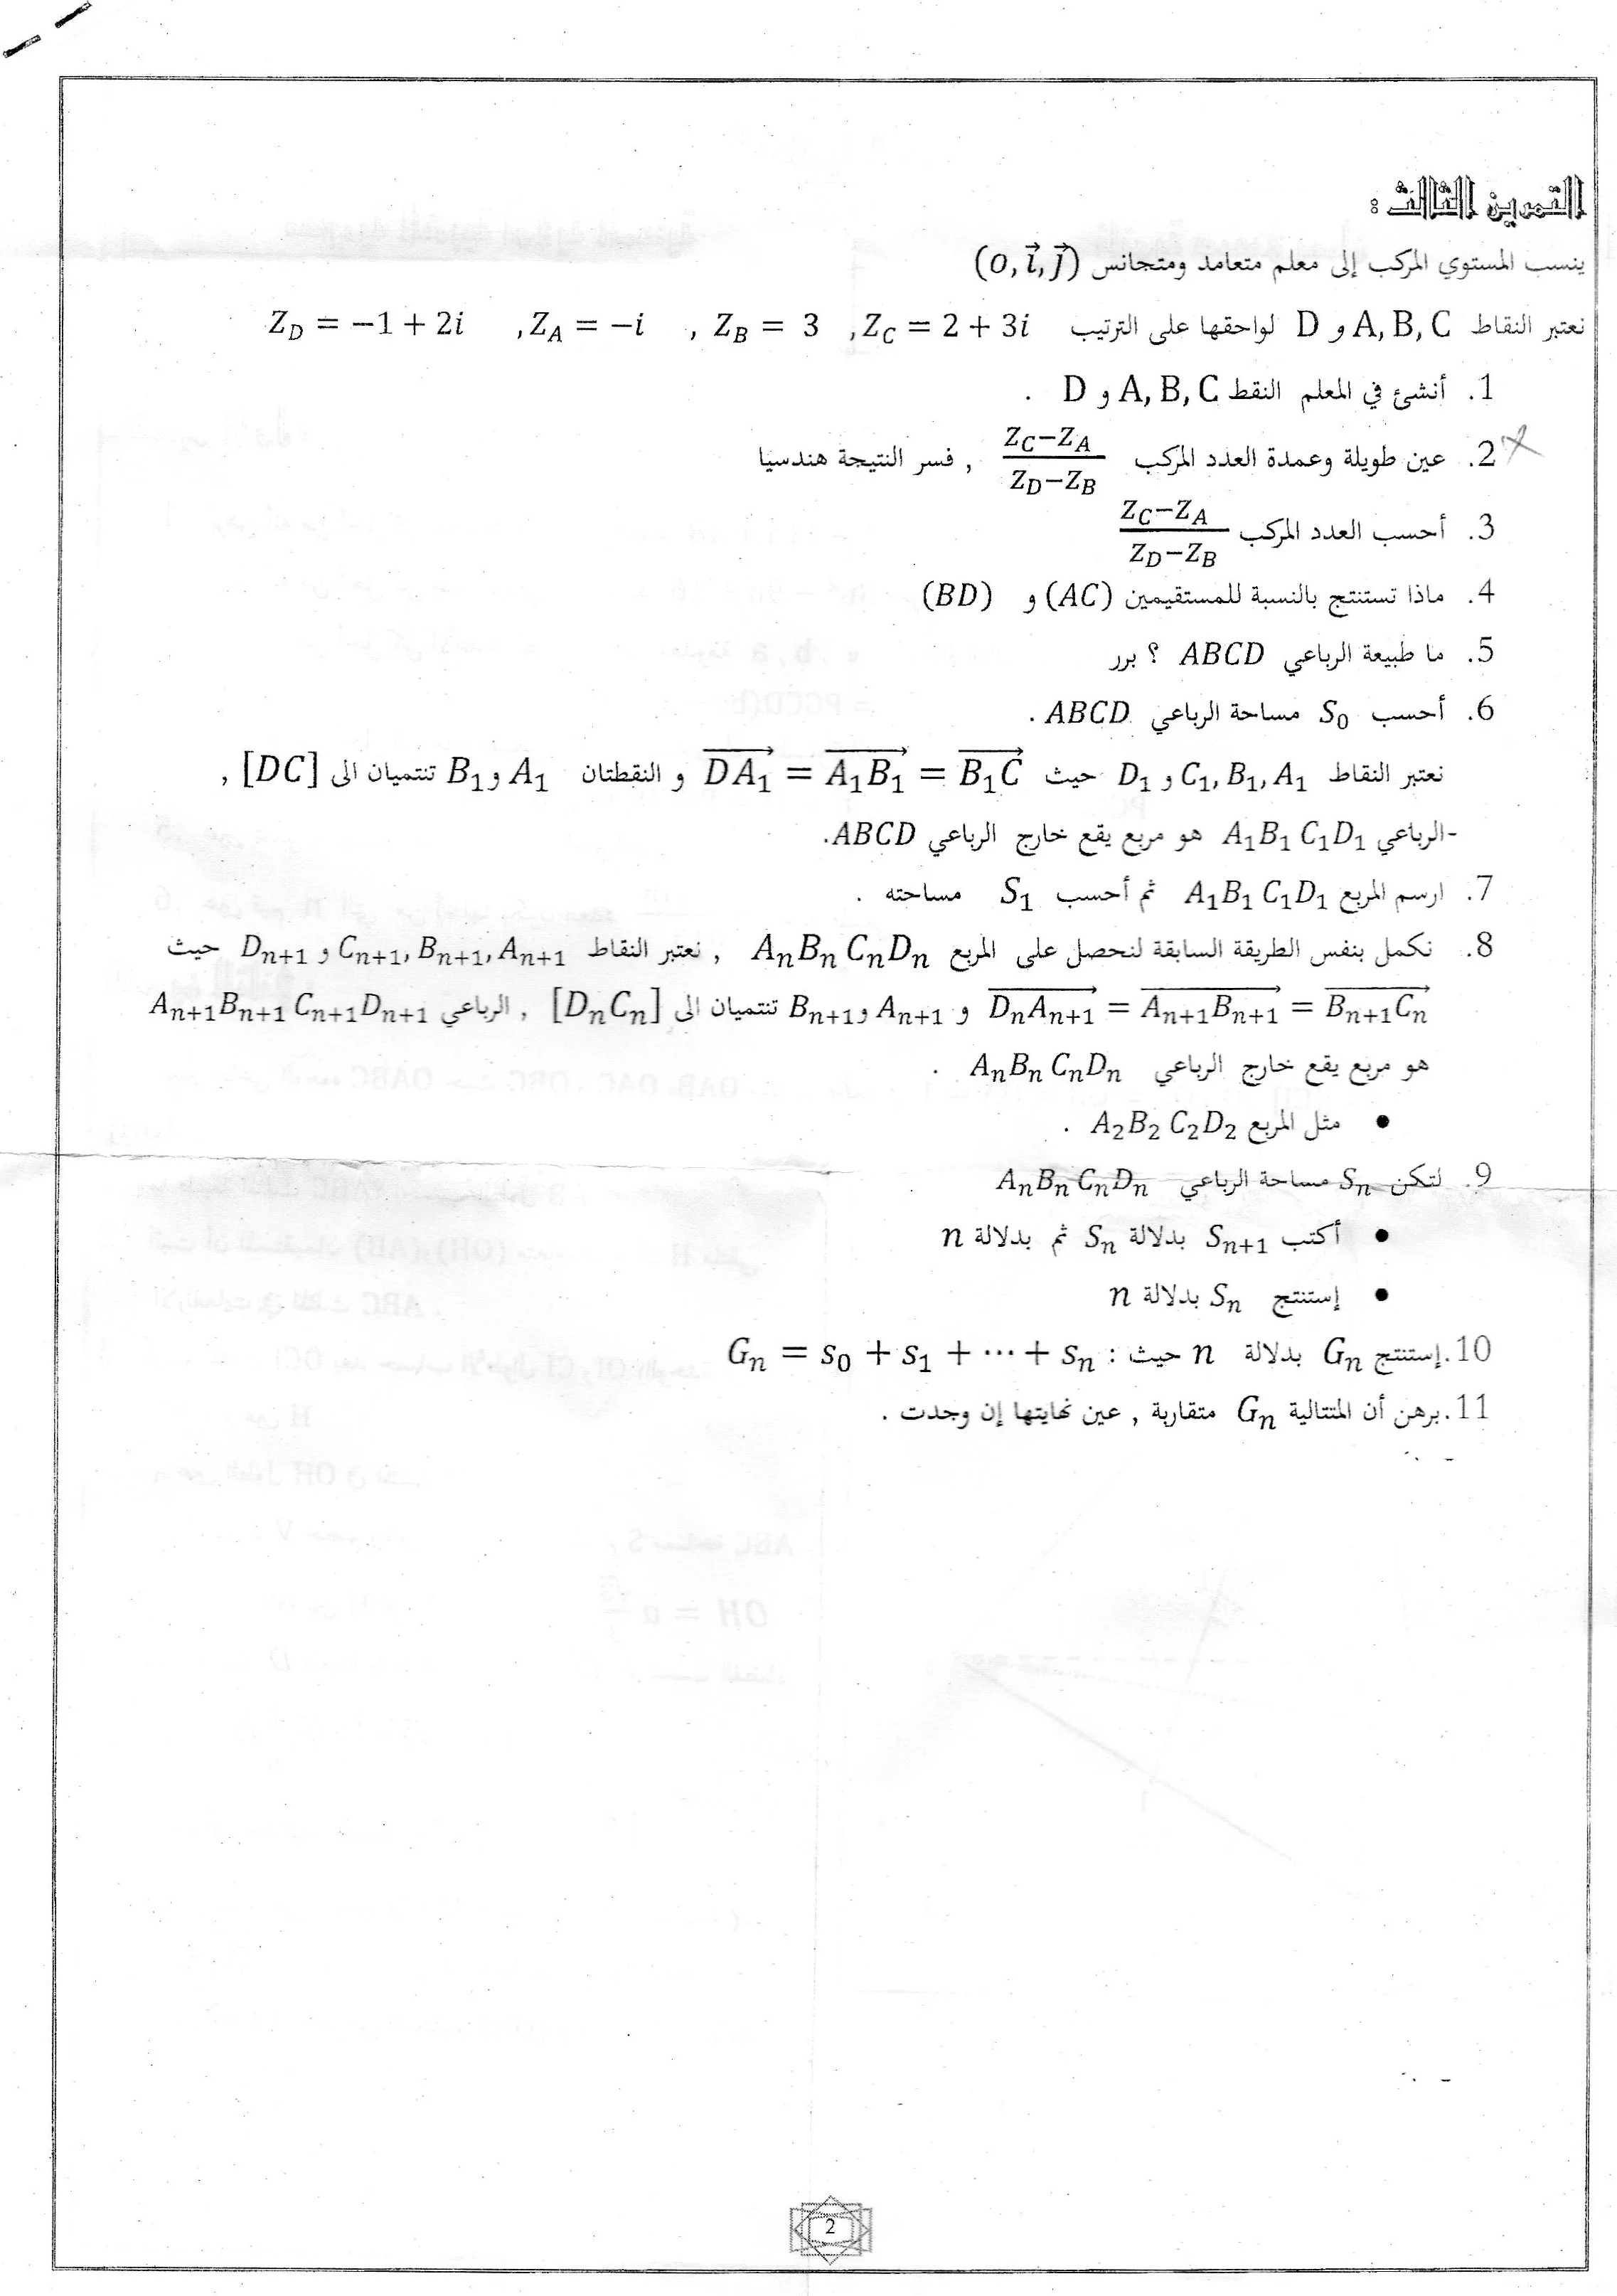 التمرين الثالث :
ينسب المستوي المركب إلى معلم متعامد ومتجانس (o, i⃗, j⃗)
نعتبر النقاط A, B, C و D لواحقها على الترتيب Z_D = −1 + 2i , Z_A = −i , Z_B = 3 , Z_C = 2 + 3i
1. أنشئ في المعلم النقط A, B, C و D .
2. عين طويلة وعمدة العدد المركب (Z_C−Z_A)/(Z_D−Z_B) , فسر النتيجة هندسيا
3. أحسب العدد المركب (Z_C−Z_A)/(Z_D−Z_B)
4. ماذا تستنتج بالنسبة للمستقيمين (AC) و (BD)
5. ما طبيعة الرباعي ABCD ؟ برر
6. أحسب S₀ مساحة الرباعي ABCD .
نعتبر النقاط C₁, B₁, A₁ و D₁ حيث DA₁⃗ = A₁B₁⃗ = B₁C⃗ و النقطتان A₁ و B₁ تنتميان الى [DC] ,
-الرباعي A₁B₁C₁D₁ هو مربع يقع خارج الرباعي ABCD.
7. ارسم المربع A₁B₁C₁D₁ ثم أحسب S₁ مساحته .
8. نكمل بنفس الطريقة السابقة لنحصل على المربع AₙBₙCₙDₙ , نعتبر النقاط Cₙ₊₁, Bₙ₊₁, Aₙ₊₁ و Dₙ₊₁ حيث
DₙAₙ₊₁⃗ = Aₙ₊₁Bₙ₊₁⃗ = Bₙ₊₁Cₙ⃗ و Aₙ₊₁ و Bₙ₊₁ تنتميان الى [DₙCₙ] , الرباعي Aₙ₊₁Bₙ₊₁Cₙ₊₁Dₙ₊₁
هو مربع يقع خارج الرباعي AₙBₙCₙDₙ .
• مثل المربع A₂B₂C₂D₂ .
9. لتكن Sₙ مساحة الرباعي AₙBₙCₙDₙ
• أكتب Sₙ₊₁ بدلالة Sₙ ثم بدلالة n
• إستنتج Sₙ بدلالة n
10. إستنتج Gₙ بدلالة n حيث : Gₙ = s₀ + s₁ + ⋯ + sₙ
11. برهن أن المتتالية Gₙ متقاربة , عين نهايتها إن وجدت .
2